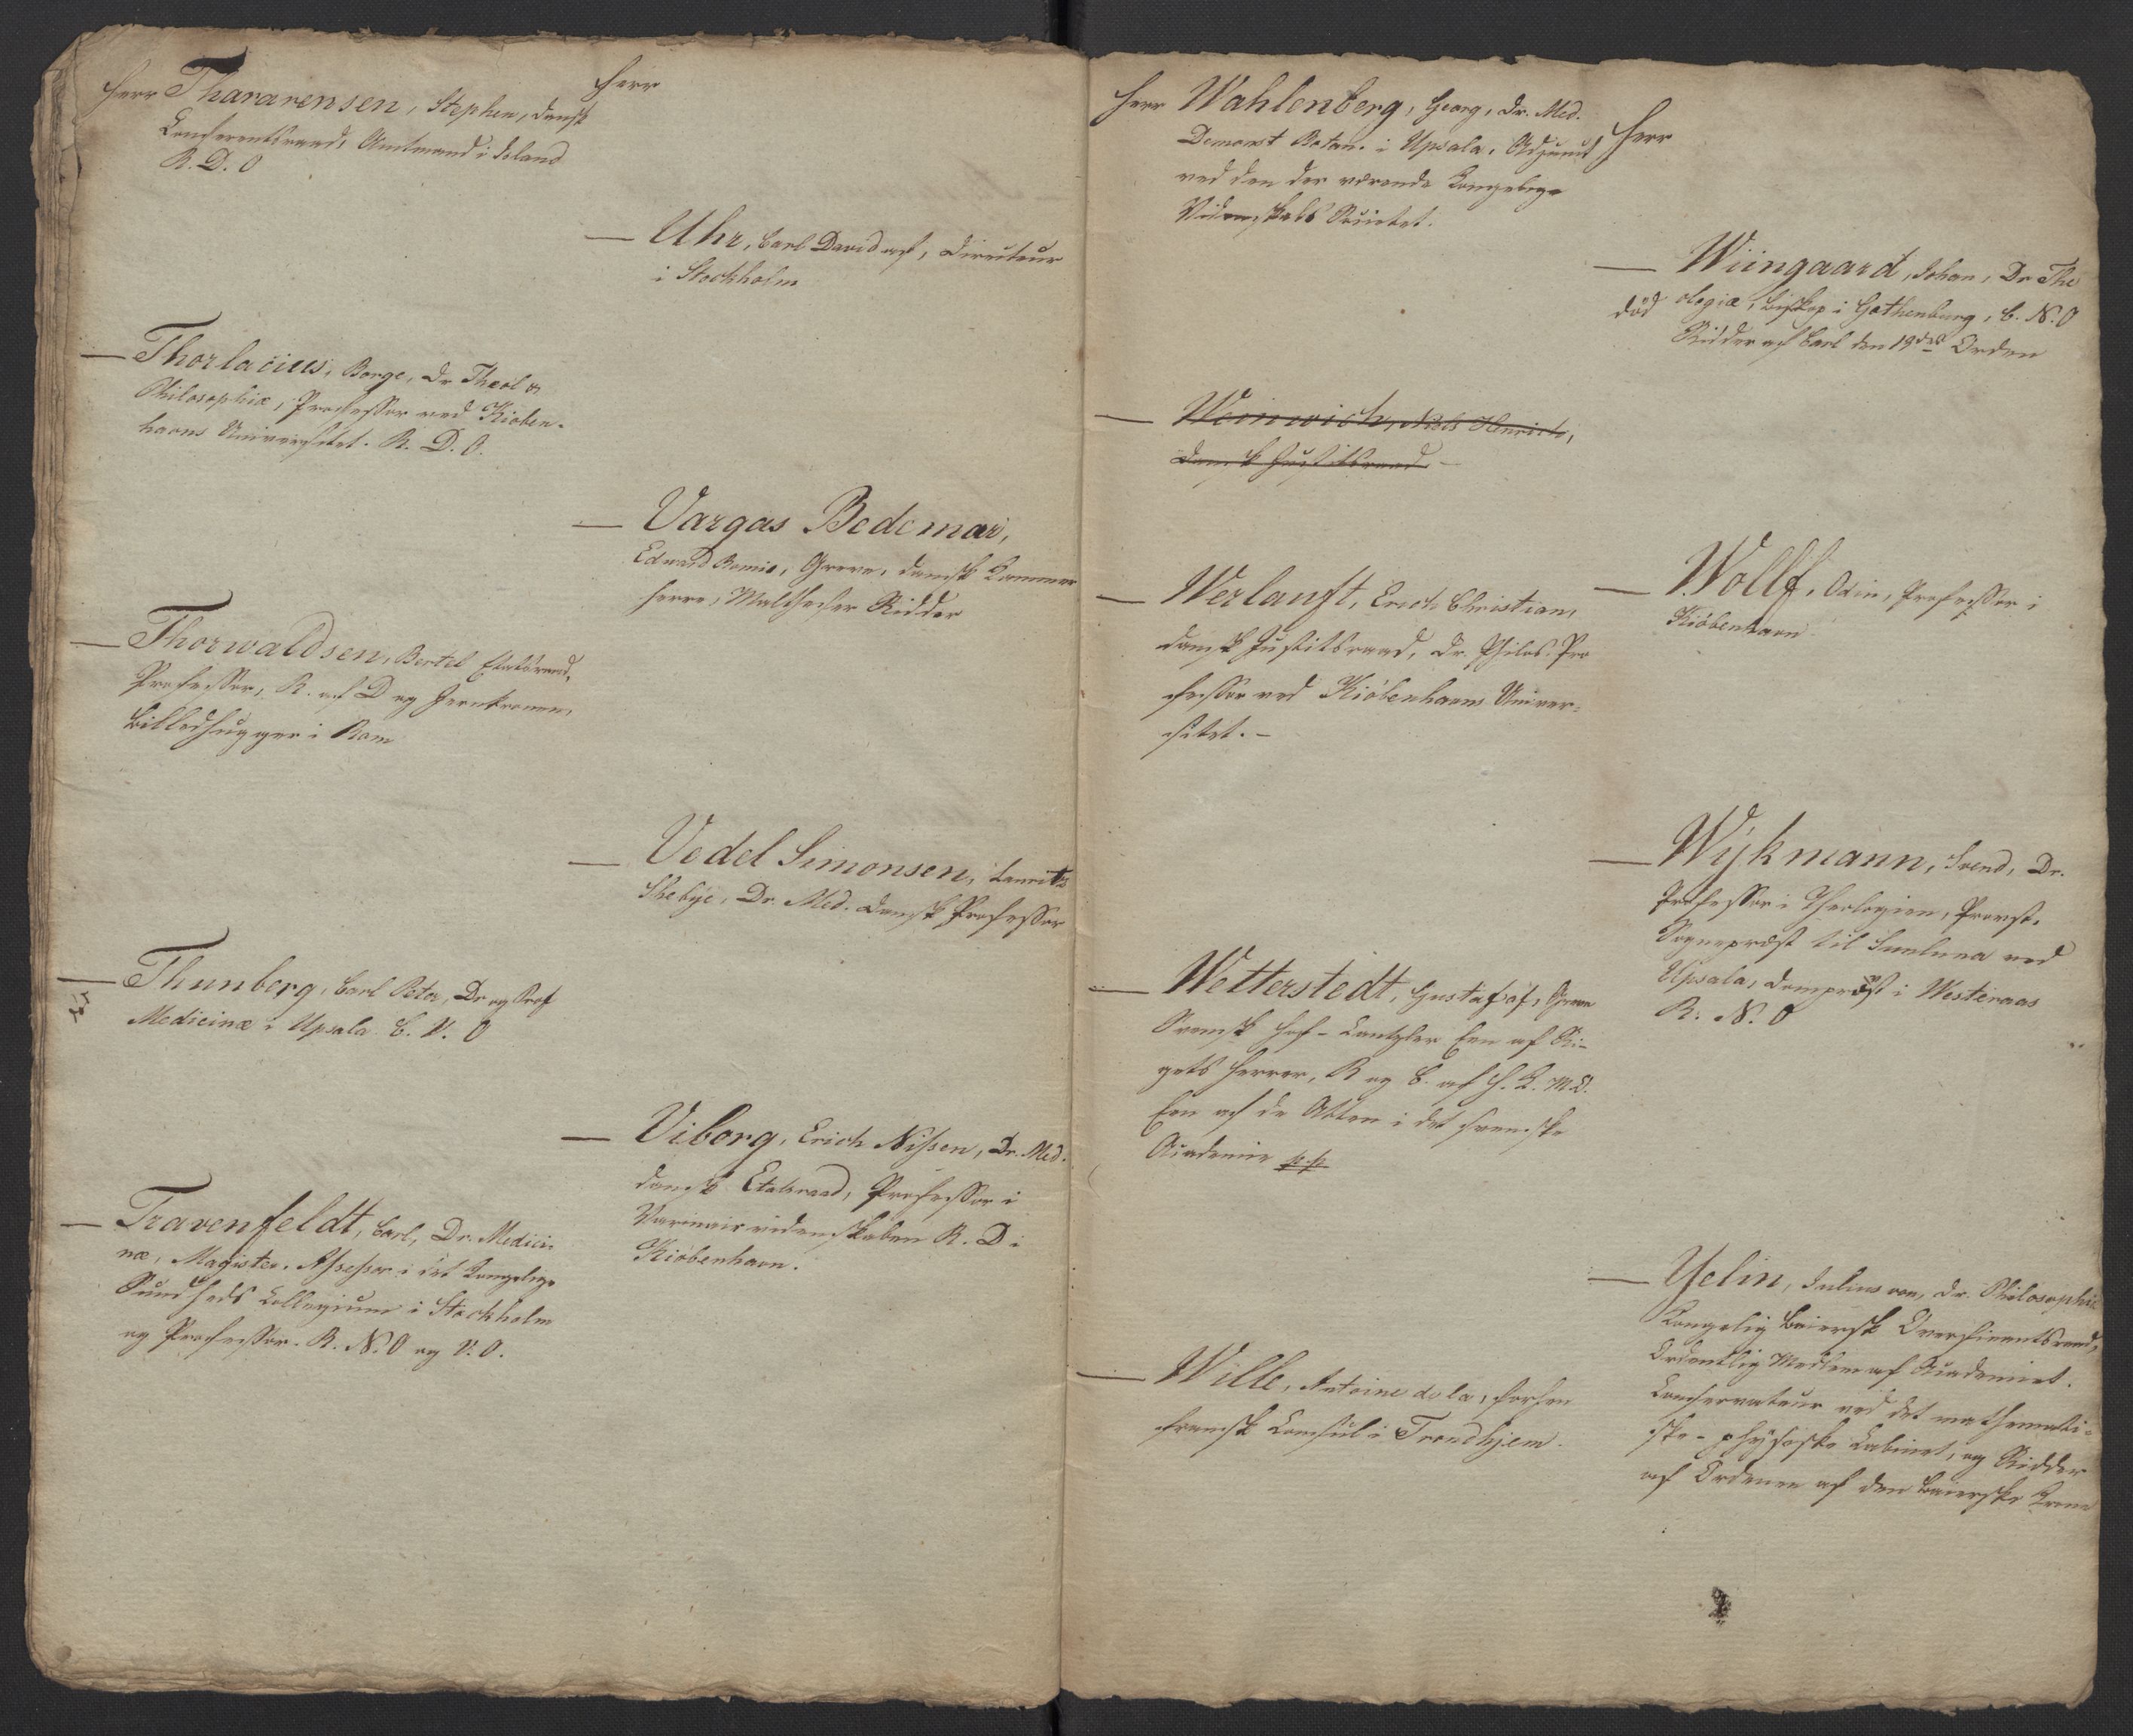 Herr Thararensen, Stephen, dansk
Conferentsraad, Amtmand i Island
R. D. O
— Thorlacius, Borge, Dr Theol &
Philosophiæ, Professor ved Kioben-
havns Universitet. R. D. O.
— Thorwaldsen, Bertel Etatsraad,
Professor, R. af D og Jernkronen,
Billedhugger i Rom
— Thunberg, Carl Peter, Dr og Prof
Medicinæ i Upsala C. V. O
— Travenfeldt, Carl, Dr. Medici-
næ, Magister. Assessor i det Kongelige
Sundheds Collegium i Stockholm
og Professor. R. N. O og V. O.
Herr
— Uhr, Carl David af, Directeur
i Stockholm
— Vargas Bedemar,
Eduard Romio, Greve, dansk Kammer
herre, Maltheser Ridder
— Vedel Simonsen, Lauritz
Skebye, Dr. Med. dansk Professor
— Viborg, Erich Nissen, Dr. Med.
dansk Etatsraad, Professor i
Varinairvidenskaben R. D i
Kiöbenhavn.
Herr Wahlenberg, Georg, Dr. Med.
Demonst Botan. i Upsala, Adjunct
ved den der værende Kongelige
Videnskabs Societet.
— Weinwich, Niels Henrich,
dansk Justitsraad. —
— Werlauft, Erich Christian,
dansk Justitsraad, Dr. Philos. Pro
fessor ved Kiöbenhavns Univer-
sitet. —
— Wetterstedt, Gustaf af, Greve
Svensk Hof-Cantzler Een af Ri-
gets Herrer, R og C. af H. K. M. O.
Een af de Atten i det svenske
Academie p.p.
— Wille, Antoine de la, forhen
fransk Consul i Trondhjem.
Herr
— Wiingaard, Johan, Dr The
död ologiæ, Biskop i Gothenburg, C. N. O
Ridder af Carl den 13des Orden
— Wollf, Odin, Professor i
Kiöbenhavn
— Wijkmann, Svend, Dr.
Professor i Theologien, Provst,
Sognepræst til ved
Upsala, Domprost i Westeraas
R. N. O
— Yelin, Julius von, Dr. Philosophiæ
Kongelig Baiersk Overfinantsraad,
Ordentlig Medlem af Academiet.
Conservateur ved det mathemati-
ske-physiske Cabinet, og Ridder
af Ordenen af den baierske Krone